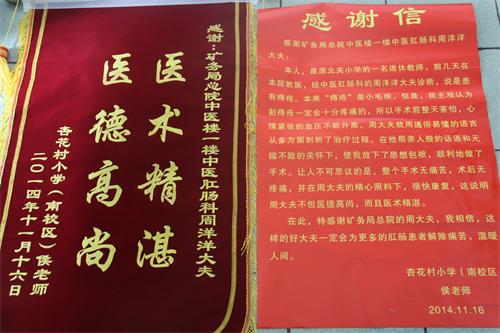 感谢：矿务局总院中医楼一楼中医肛肠科周洋洋大夫
医术精湛
医德高尚
杏花村小学（南校区）侯老师
二〇一四年十一月十六日
感谢信
感谢矿务局总院中医楼一楼中医肛肠科周洋洋
大夫：
本人，是原北关小学的一名退休教师，前几天在
本院就医，经中医肛肠科的周洋洋大夫诊断，说是患
有痔疮。本来“痔疮”是小毛病。但是，我主观认为
割痔疮一定会十分疼痛的，所以手术前整天害怕，心
情紧张的血压不断升高。周大夫就用通俗易懂的语言
从多方面剖析了治疗过程。在他那亲人般的话语和无
微不致的关怀下，使我放下了思想包袱，顺利地做了
手术。让人不可思议的是，整个手术无痛苦，术后无
疼痛，并在周大夫的精心照料下，很快康复，这说明
周大夫不但医德高尚，而且医术精湛。
在此，特感谢矿务局总院的周大夫，我相信，这
样的好大夫一定会为更多的肛肠患者解除痛苦，温暖
人间。
杏花村小学（南校区
侯老师
2014.11.16